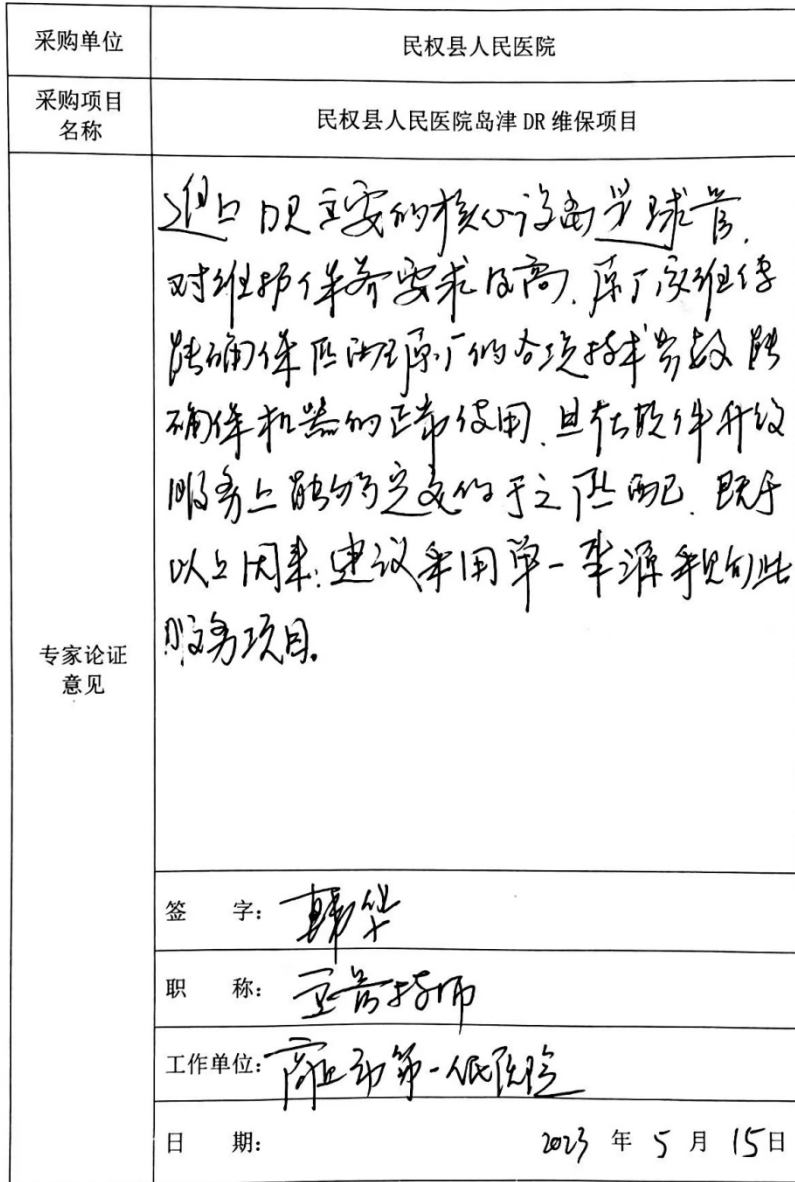 采购单位
民权县人民医院
采购项目
名称
民权县人民医院岛津 DR 维保项目
专家论证
意见
进口DR主要的核心设备是球管,
对维护保养要求极高,原厂家维保
能确保匹配原厂的各项技术参数能
确保机器的正常使用,且在软件升级
服务上能够完交的于之匹配,既于
以上因素,建议采用单一来源采购此
服务项目。
签 字:韩华
职 称:主管技师
工作单位:商丘市第一人民医院
日 期: 2023 年 5 月 15日